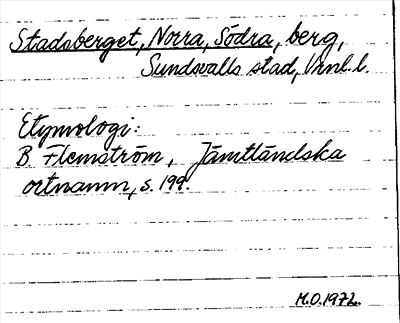 Stadsberget, Norra, Södra, berg,
Sundsvalls stad, Vrnl. l.
Etymologi:
B Flemström, Jämtländska
ortnamn, s. 199.
M.O. 1972.